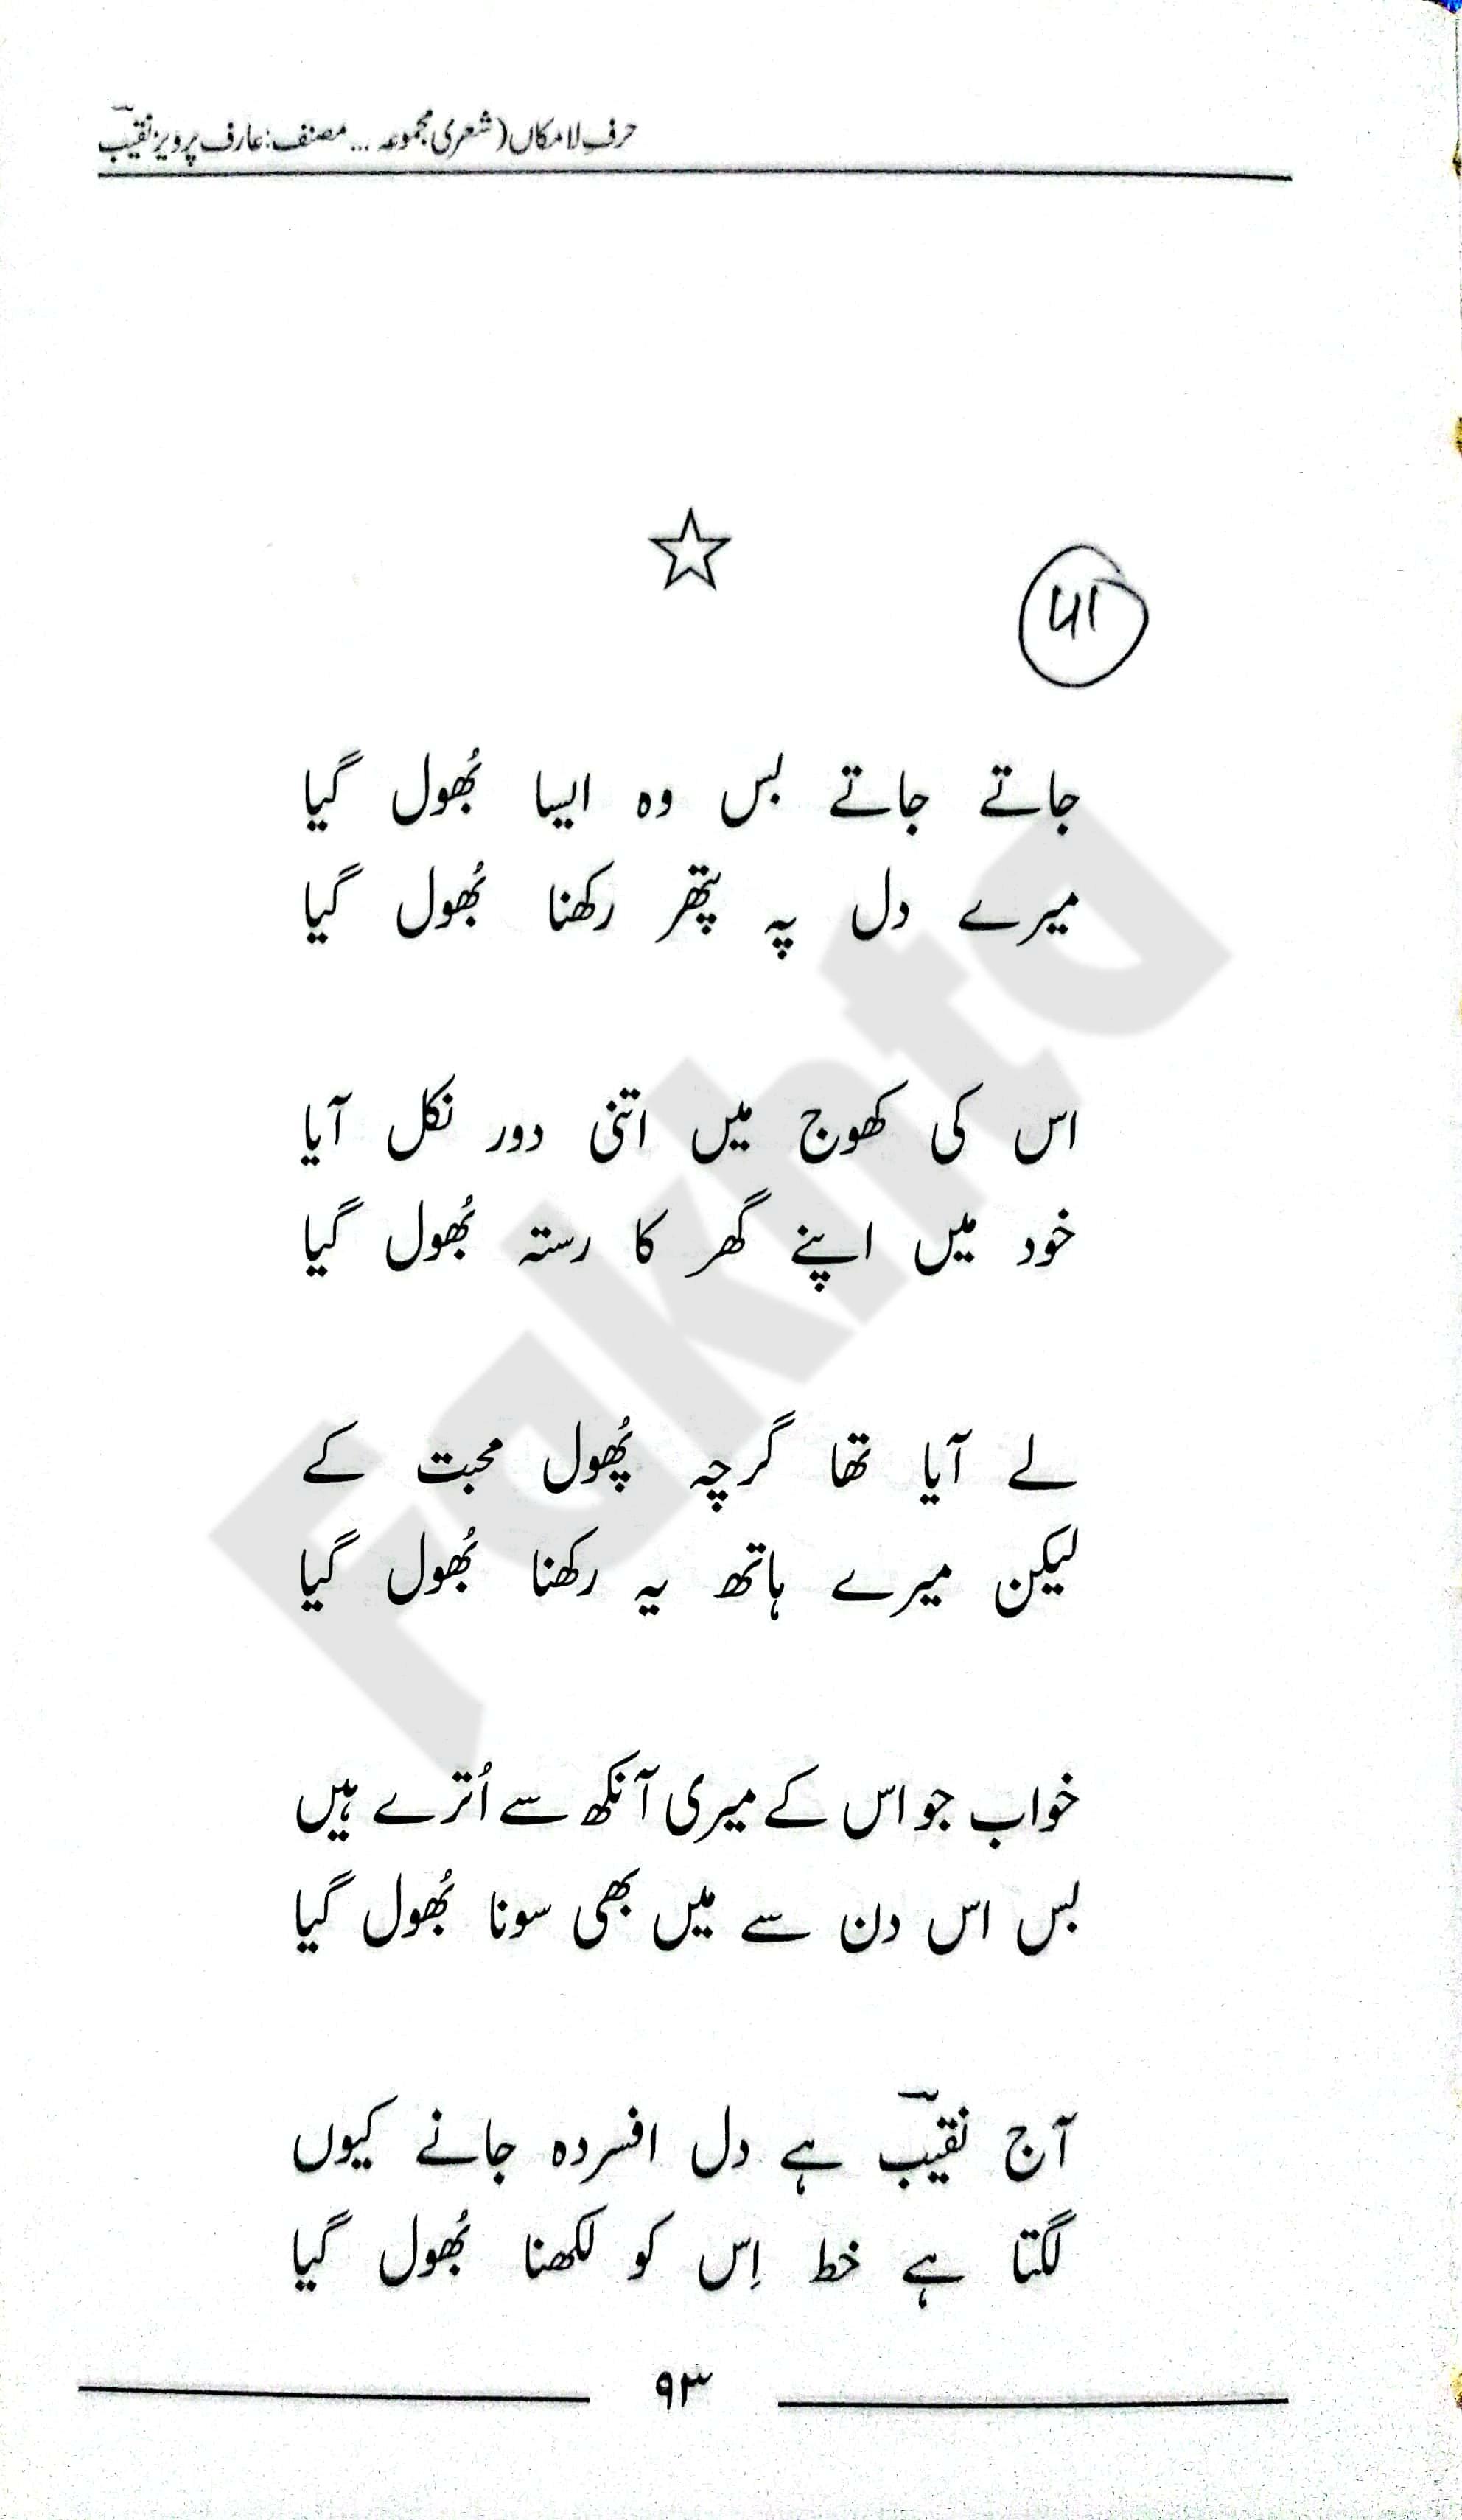 حرفِ لامکاں (شعری مجموعہ ... مصنف: عارف پرویز نقیبؔ
جاتے جاتے بس وہ ایسا بُھول گیا
میرے دل پہ پتھر رکھنا بُھول گیا
اس کی کھوج میں اتنی دور نکل آیا
خود میں اپنے گھر کا رستہ بُھول گیا
لے آیا تھا گرچہ پُھول محبت کے
لیکن میرے ہاتھ یہ رکھنا بُھول گیا
خواب جو اس کے میری آنکھ سے اُترے ہیں
بس اس دن سے میں بھی سونا بُھول گیا
آج نقیبؔ ہے دل افسردہ جانے کیوں
لگتا ہے خط اِس کو لکھنا بُھول گیا
۹۳
Fakhta